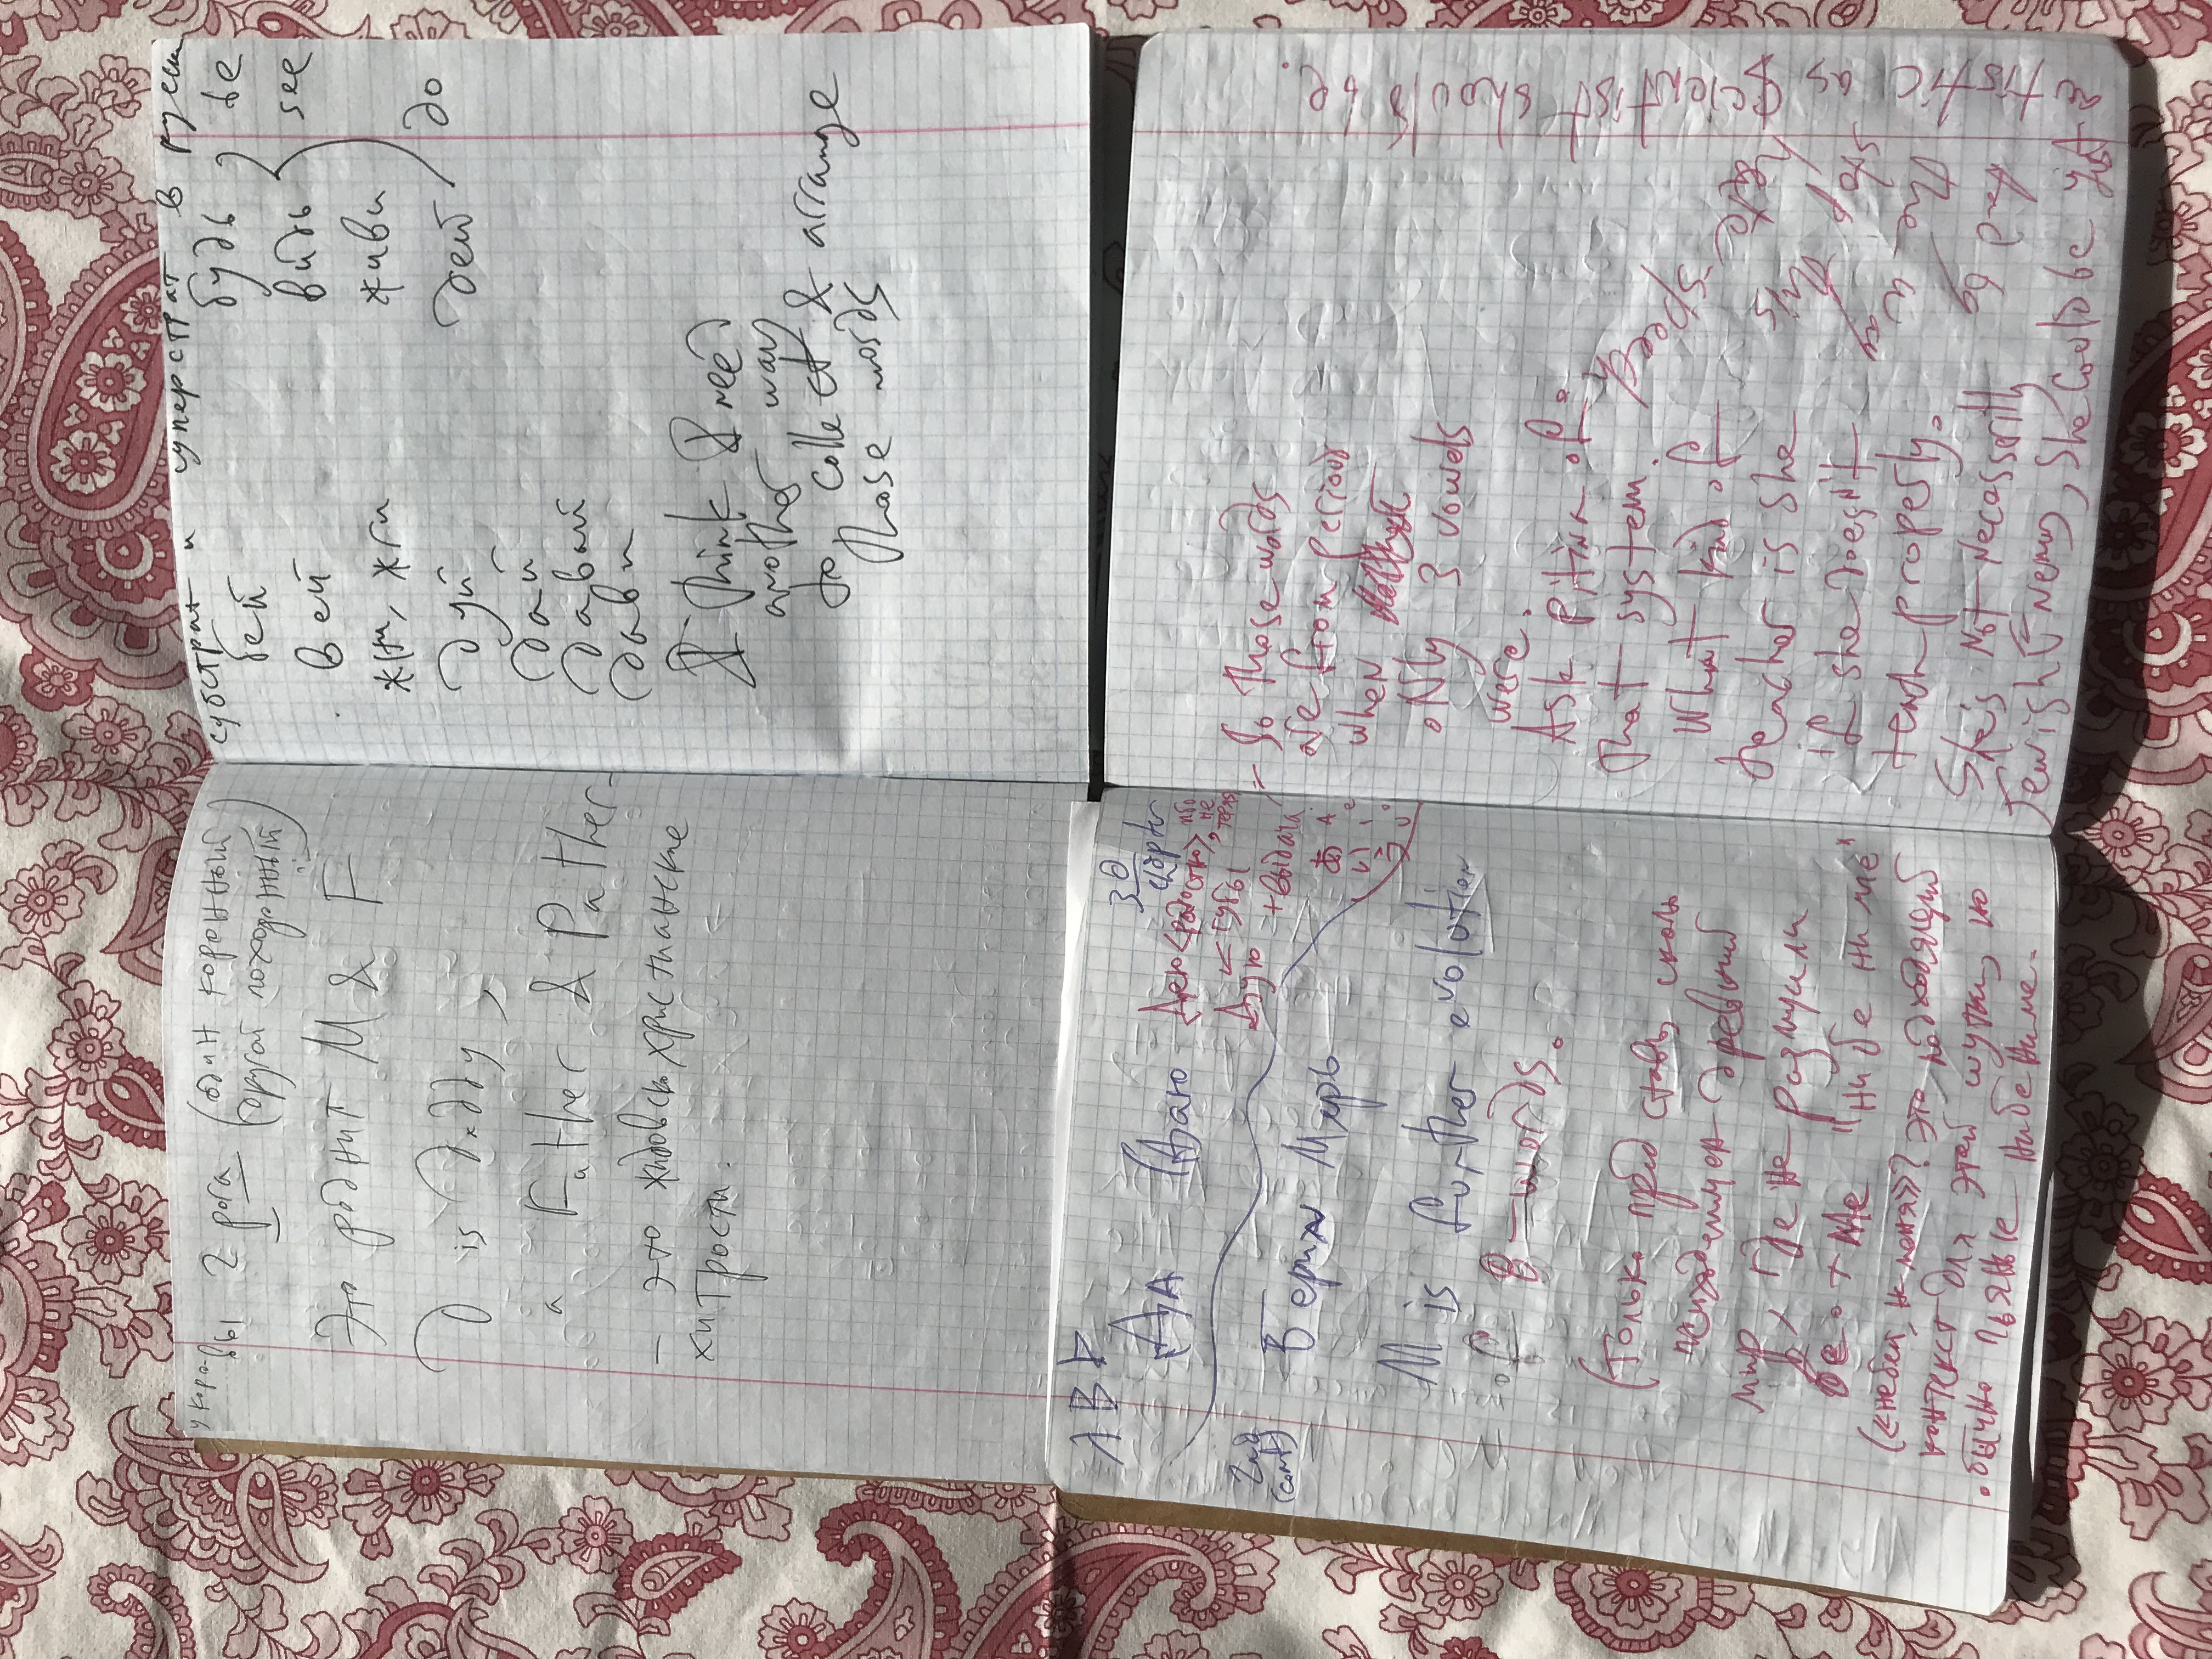 у коро-
вы 2 рога (один коренный
другой похоронный)
Это роднит M & F
D is Daddy,
а Father & Pather-
– это жидовско христианские
хитрости.
субстрат и суперстрат в русск
бей будь be
вей видь see
жни, жги живи
дуй дей do
дай
давай
дави
I think I need
another way
to collect & arrange
those words
ΛΒ
3
chapter
ДА Даю Дею <радостно>, ибо
не
теряю
Дую ← губы
+выдача
2nd
(cont)
あ A
い I
う U
M is further evolution
of B-words.
(Только представь, сколь
древний
мир, где не различали
бе + ме "ни бе ни ме"
(«не бей, не меня»? это подходящий
контекст для этой шутки, но
обычно пьяные ни бе ни ме.
– So those words
are from period
when
oNly 3 vowels
were.
Ask of
that system.
What kind of
teacher is she
if she doesn't
teach properly.
She is Not Necessarily
Jewish Enemy, she could be just
as Scientist should be.